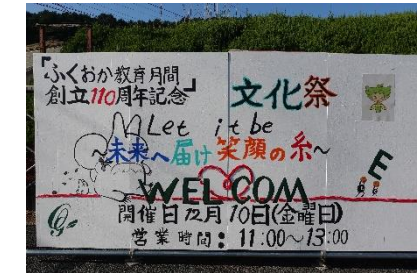 「ふくおか教育月間」
創立110周年記念
文化祭
Let it be
~未来へ届け笑顔の糸~
WELCOM
E
開催日12月10日(金曜日)
営業時間:11:00~13:00